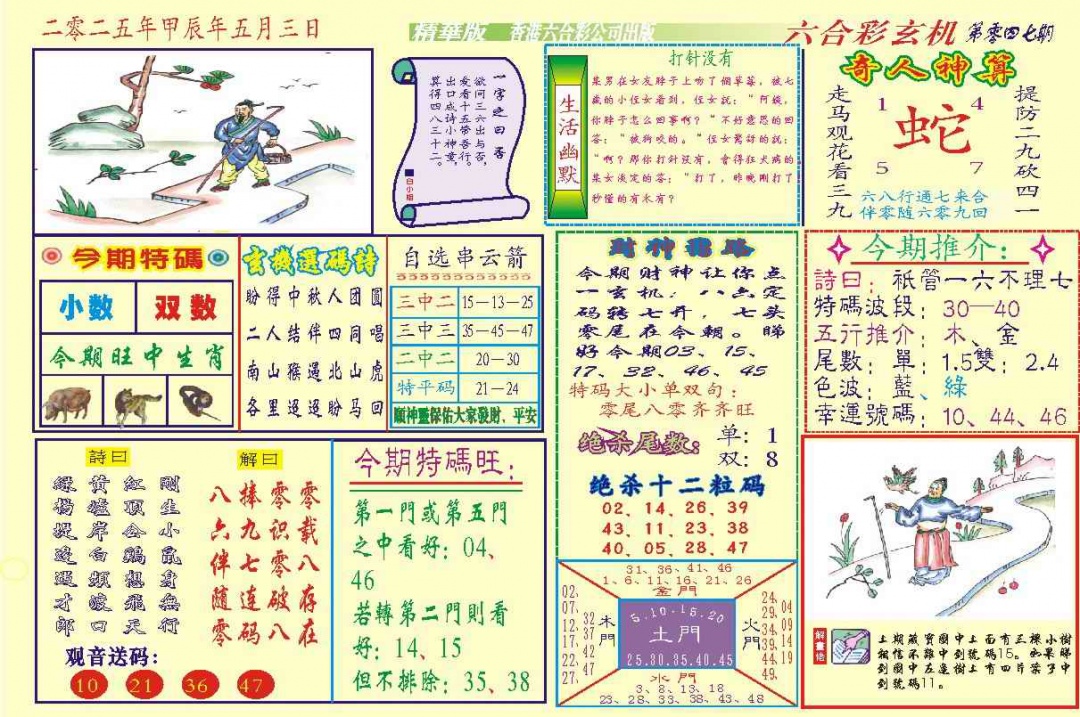 二零二五年甲辰年五月三日
精華版 香港六合彩公司出版
六合彩玄机 第零四七期
一字之曰:否
欲问三六出与否,
爱看十五吾与行。
出口成诗小神童,
算得四八三十二。
白小姐
生活幽默
打针没有
某男在女友脖子上吻了個草莓,被七
歲的小侄女看到,侄女說:“阿姨,
你脖子怎么回事啊?”不好意思的回
答:“被狗咬的。”侄女驚訝的說:
“啊?那你打针没有,會得狂犬病的
某女淡定的答:“打了,昨晚剛打了
秒懂的有木有?
奇人神算
走马观花看三九
1 4
蛇
5 7
提防二九砍四一
六八行通七来合
伴零随六零九回
今期特碼
小数 双数
今期旺中生肖
玄機選碼詩
盼得中秋人团圓
二人结伴四同唱
南山猴遇北山虎
各里逕逕盼马回
自选串云箭
三中二 15—13—25
三中三 35—45—47
二中二 20—30
特平码 21—24
順神靈保佑大家發財、平安
财神
今期财神让你点
一玄机,八六定
码转七开,七头
零尾在今朝。睇
好今期03、15、
17、32、46、45
特码大小单双句:
零尾八零齐齐旺
绝杀尾数: 单: 1
双: 8
绝杀十二粒码
02、14、26、39
43、11、23、38
40、05、28、47
今期推介:
詩曰: 祇管一六不理七
特碼波段: 30—40
五行推介: 木、金
尾數: 單: 1.5雙: 2.4
色波: 藍、綠
幸運號碼: 10、44、46
詩曰
剛生小鼠身無行
紅頂公鷄想飛天
黄墟岸白烦渡口
綠楊堤邊遇才郎
解曰
零载八存在
零识零破八
捧九七连码
八六伴随零
观音送码:
10 21 36 47
今期特碼旺:
第一門或第五門
之中看好: 04、
46
若轉第二門則看
好: 14、15
但不排除: 35、38
31、36、41、46
1、6、11、16、21、26
金門
02、07、12、17、22、27、
32 37 42 47
木門
5.10.15.20
土門
25.30.35.40.45
火門
24、29、34、39、44、49、
04 09 14 19
水門
3、8、13、18
23、28、33、38、43、48
解畫佬
上期藏寶圖中上面有三棵小樹
相信不難中到號碼15。如果睇
到圖中左邊樹上有四片葉子中
到號碼11。